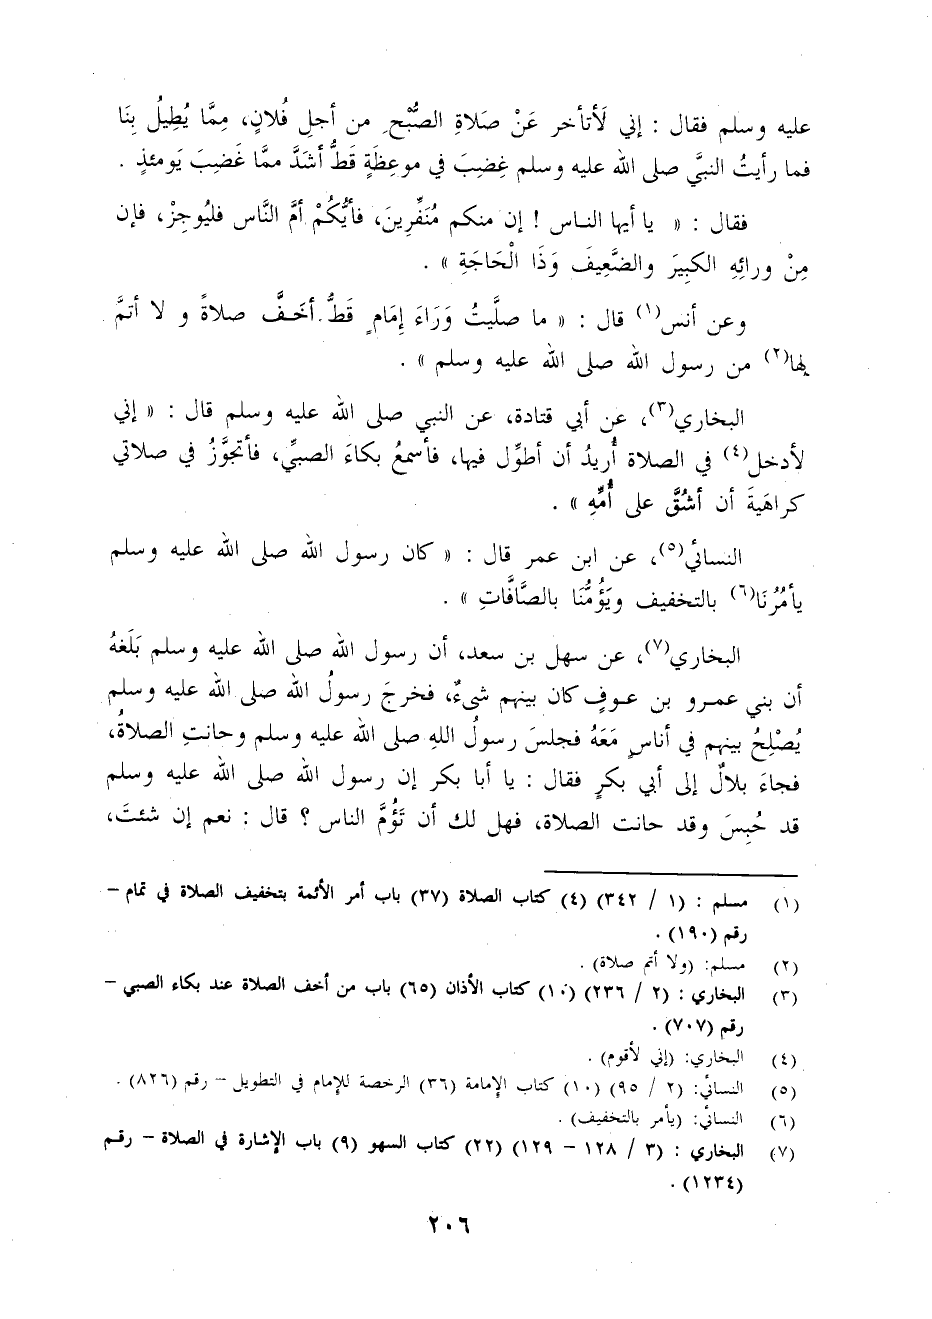 عليه وسلم فقال : إني لَأتأخر عَنْ صَلاةِ الصُّبْحِ من أجلِ فُلانٍ، مِمَّا يُطِيلُ بِنَا
فما رأيتُ النبيَّ صلى الله عليه وسلم غَضِبَ في موعِظَةٍ قَطُّ أشَدَّ ممَّا غَضِبَ يَومئذٍ .
فقال : « يا أيها الناس ! إن منكم مُنَفِّرِينَ، فأيُّكُمْ أمَّ النَّاس فليُوجِزْ، فإن
مِنْ ورائِهِ الكبِيَرَ والضَّعِيفَ وَذَا الْحَاجَةِ » .
وعن أنس(١) قال : « ما صلَّيتُ وَرَاءَ إمَامٍ قَطُّ أخَفَّ صلاةً و لا أتمَّ
لها(٢) من رسول الله صلى الله عليه وسلم » .
البخاري(٣)، عن أبي قتادة، عن النبي صلى الله عليه وسلم قال : « إني
لأدخل(٤) في الصلاة أُريدُ أن أطوِّل فيها، فأسمعُ بكاءَ الصبيِّ، فأتجوَّزُ في صلاتي
كراهَيةَ أن أشُقَّ على أُمِّهِ » .
النسائي(٥)، عن ابن عمر قال : « كان رسول الله صلى الله عليه وسلم
يأمُرُنَا(٦) بالتخفيف ويَؤُمُّنَا بالصَّافَّاتِ » .
البخاري(٧)، عن سهل بن سعد، أن رسول الله صلى الله عليه وسلم بَلَغهُ
أن بني عمرو بن عوفٍ كان بينهم شىءٌ، فخرجَ رسولُ الله صلى الله عليه وسلم
يُصْلِحُ بينهم في أناسٍ مَعَهُ فجلسَ رسولُ اللهِ صلى الله عليه وسلم وحانتِ الصلاةُ،
فجاءَ بلالٌ إلى أبي بكرٍ فقال : يا أبا بكر إن رسول الله صلى الله عليه وسلم
قد حُبِسَ وقد حانت الصلاة، فهل لك أن تَؤُمَّ الناس ؟ قال : نعم إن شئتَ،
(١) مسلم : (١ / ٣٤٢) (٤) كتاب الصلاة (٣٧) باب أمر الأئمة بتخفيف الصلاة في تمام –
رقم (١٩٠) .
(٢) مسلم: (ولا أتم صلاة) .
(٣) البخاري : (٢ / ٢٣٦) (١٠) كتاب الأذان (٦٥) باب من أخف الصلاة عند بكاء الصبي –
رقم (٧٠٧) .
(٤) البخاري: (إني لأقوم) .
(٥) النسائي: (٢ / ٩٥) (١٠) كتاب الإمامة (٣٦) الرخصة للإمام في التطويل – رقم (٨٢٦) .
(٦) النسائي: (يأمر بالتخفيف) .
(٧) البخاري : (٣ / ١٢٨ – ١٢٩) (٢٢) كتاب السهو (٩) باب الإشارة في الصلاة – رقم
(١٢٣٤) .
٢٠٦